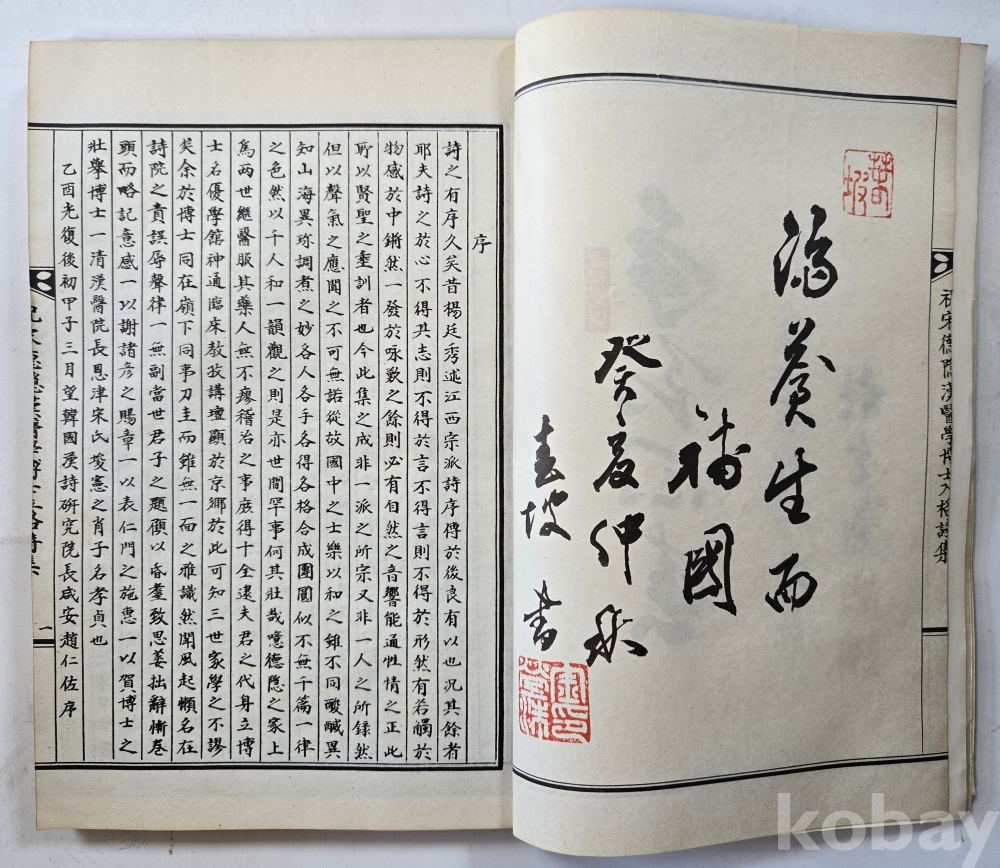 祝宋德隱漢醫學博士入格詩集
春坡
滋養生而
補國
癸夏仲秋
春坡書
序
詩之有序久矣昔楊廷秀述江西宗派詩序傳於後良有以也况其餘者
耶夫詩之於心不得其志則不得於言不得言則不得於形然有若觸於
物感於中鏘然一發於咏歎之餘則必有自然之音響能通性情之正此
所以賢聖之垂訓者也今此集之成非一派之所宗又非一人之所錄然
但以聲氣之應聞之不可無諾從故國中之士樂以和之雖不同酸鹹異
知山海異珎調煮之妙各人各手各得各格合成團圓似不無千篇一律
之色然以千人和一韻觀之則是亦世間罕事何其壯哉噫德隱之家上
爲两世継醫服其藥人無不瘳稽治之事庶得十全逮夫君之代身立博
士名優學館神通臨床敎孜講壇顯於京鄉於此可知三世家學之不謬
矣余於博士同在嶺下同事刀圭而雖無一面之雅識然聞風起懶名在
詩院之責誤辱聲律一無副當世君子之題願以昏耋致思蒌拙辭慚卷
頭而略記意感一以謝諸彦之賜章一以表仁門之施惠一以賀博士之
壯擧博士一清漢醫院長恩津宋氏埈憲之肖子名孝貞也
乙酉光復後初甲子三月望韓國漢詩硏究院長咸安趙仁佐序
一